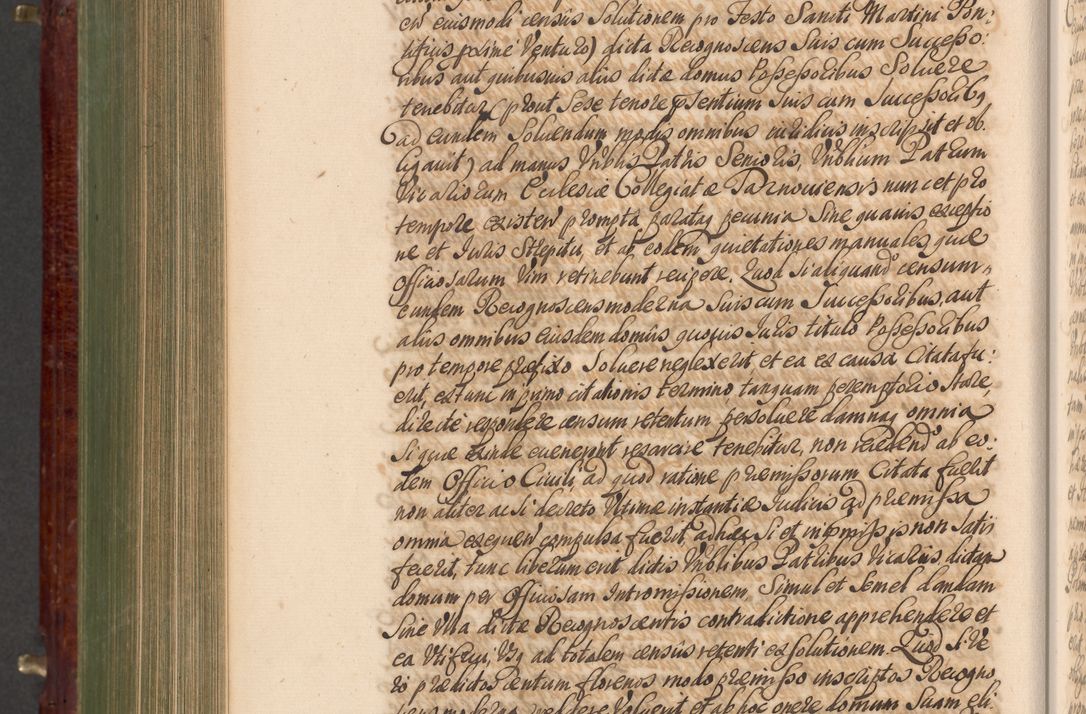 en eiusmodi census Solutionem pro Festo Sancti Martini Pon:
tificis proximè Venturo) dicta Recognoscens Suis cum Successo:
ribus aut quibusuis alijs dictæ domus Possessoribus Soluere
tenebitur (prout Sese tenore pñsentium Suis cum Successoribq
ad eundem Soluendum modis omnibus iuridicis inscripsit et ob.
ligauit) ad manus Vnblis Patris Senioris, Vnblium Patrum
Vicariorum Ecclesiæ Collegiatæ Tarnouiensis nunc et pro
tempore existeñ prompta parataq pecunia Sine quauis exceptio
ne et Iuris Strepitu, et ab eodem quietationes manuales quæ
officiosarum Vim retinebunt recipere. Quod Si aliquand̃ censum
eundem Recognoscens moderna Suis cum Successoribus, aut
alijs omnibus eiusdem domûs quouis Iuris titulo Possessoribus
pro tempore præfixo Soluere neglexerit, et ea ex causa Citata fu:
erit, ex tunc in primo citationis termino tanquam peremptorio Stare,
directè respondere censum retentum persoluere damnaq omnia
Si quæ exinde euenerint resarcire tenebitur, non recedend̃ ab eo:
dem Officio Ciuili, ad quod ratione præmissorum Citata fuerit
non aliter ac Si decreto Vltimæ instantiæ Iudicij ad præmissa
omnia exequeñ compulsa fuerit adhæc Si et in præmissis non Satis
fecerit, tunc liberum erit dictis Vnblibus Patribus Vicarijs, dictam
domum per Officiosam Intromissionem, Simul et Semel dandam
Sine Vlla dictæ Recognoscentis contradictione apprehendere et
ea Vti frui, Vsq ad totalem census retenti exsolutionem. Quod Si ve
rò prædictos Centum florenos modo præmisso inscriptos Recogno
scens moderna reddere Voluerit et ab hoc onere domum Suam eli